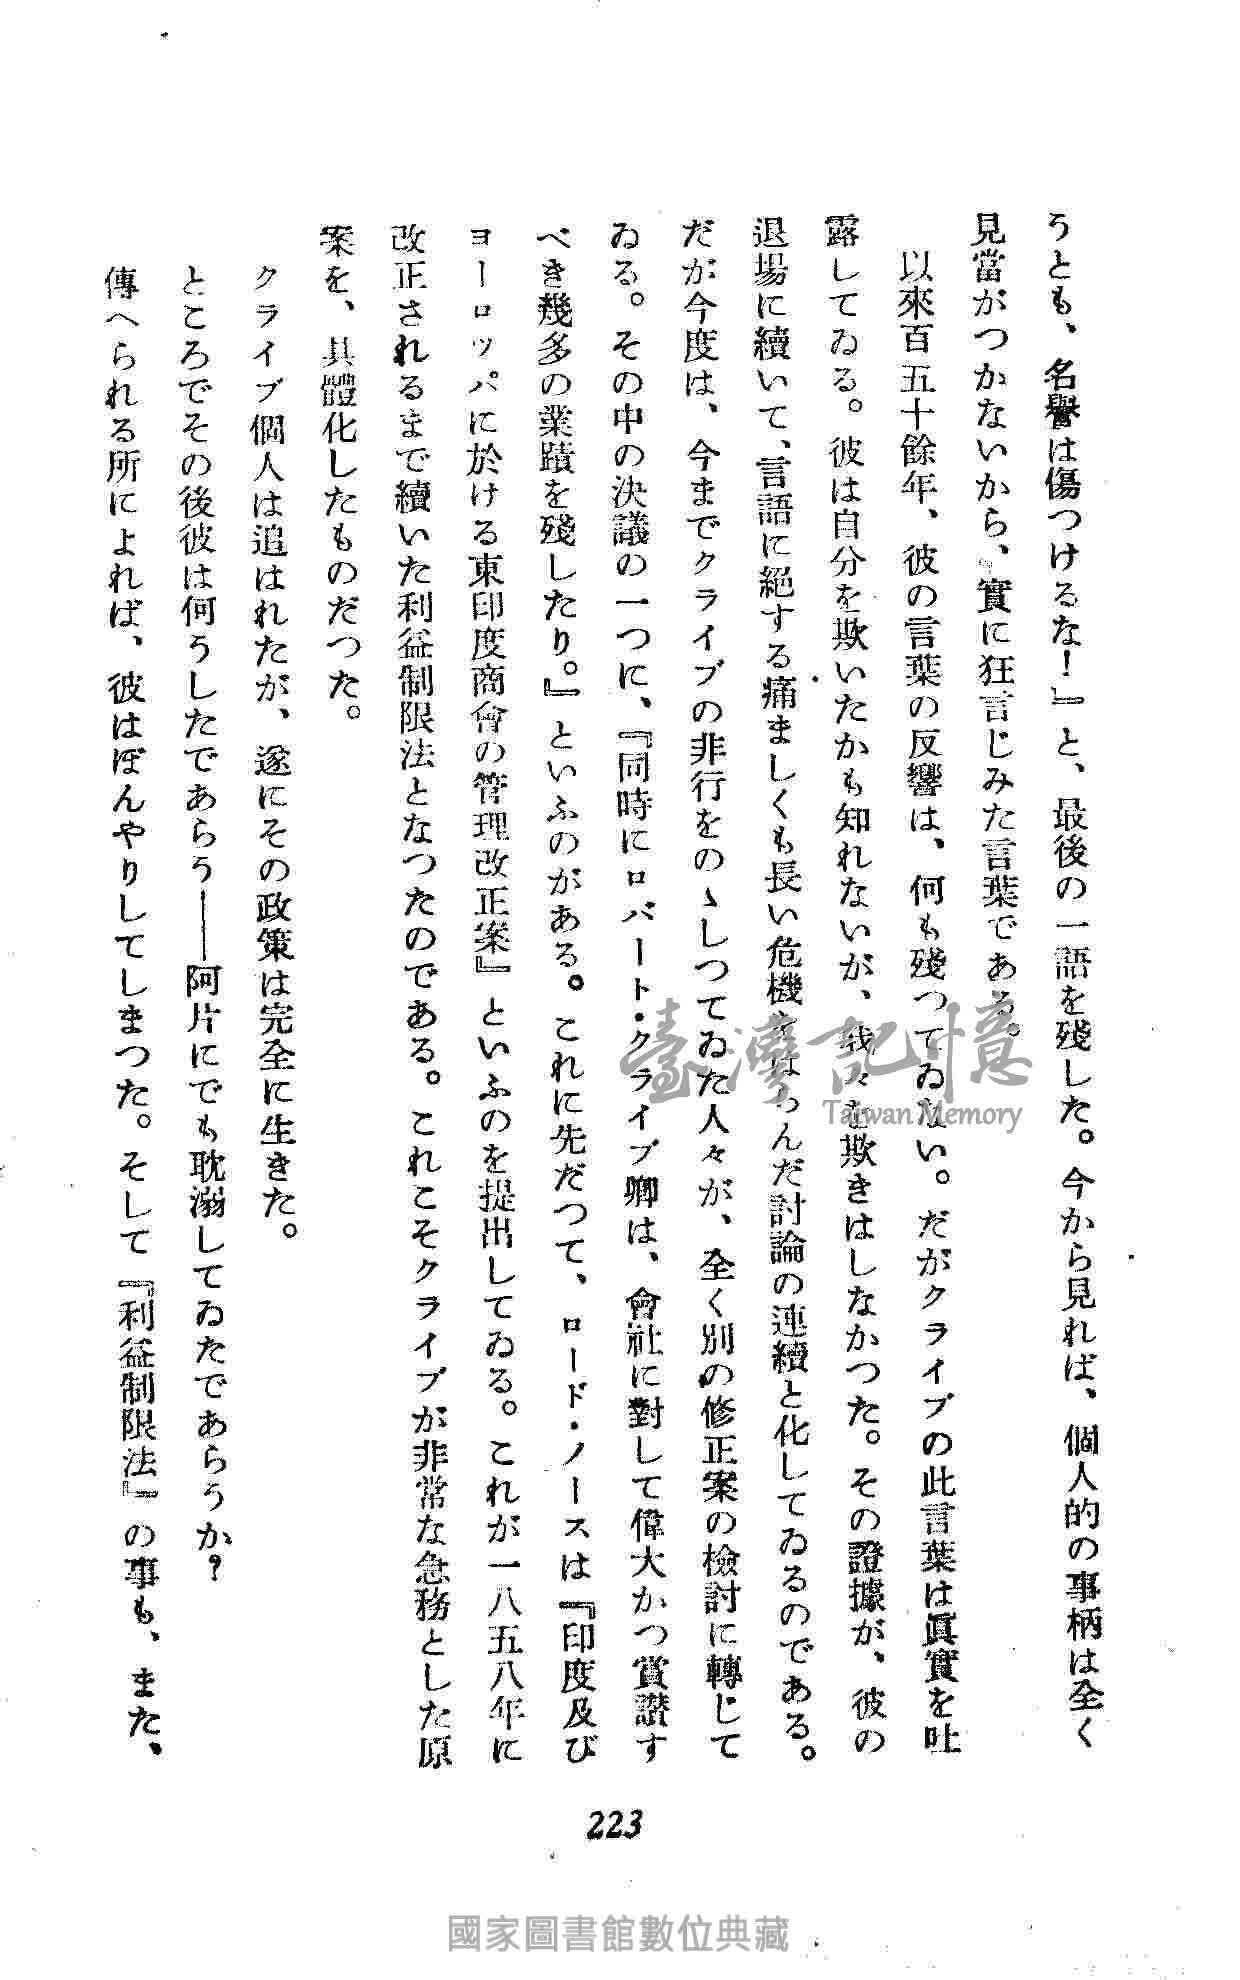 うとも、名譽は傷つけるな！』と、最後の一語を殘した。今から見れば、個人的の事柄は全く
見當がつかないから、實に狂言じみた言葉である。
以來百五十餘年、彼の言葉の反響は、何も殘つてゐない。だがクライブの此言葉は眞實を吐
露してゐる。彼は自分を欺いたかも知れないが、我々を欺きはしなかつた。その證據が、彼の
退場に續いて、言語に絕する痛ましくも長い危機をはらんだ討論の連續と化してゐるのである。
だが今度は、今までクライブの非行をのゝしつてゐた人々が、全く別の修正案の檢討に轉じて
ゐる。その中の決議の一つに、『同時にロバート・クライブ卿は、會社に對して偉大かつ賞讃す
べき幾多の業蹟を殘したり。』といふのがある。これに先だつて、ロード・ノースは『印度及び
ヨーロッパに於ける東印度商會の管理改正案』といふのを提出してゐる。これが一八五八年に
改正されるまで續いた利益制限法となつたのである。これこそクライブが非常な急務とした原
案を、具體化したものだつた。
クライブ個人は追はれたが、遂にその政策は完全に生きた。
ところでその後彼は何うしたであらう——阿片にでも耽溺してゐたであらうか？
傳へられる所によれば、彼はぼんやりしてしまつた。そして『利益制限法』の事も、また、
223
臺灣記憶
Taiwan Memory
國家圖書館數位典藏